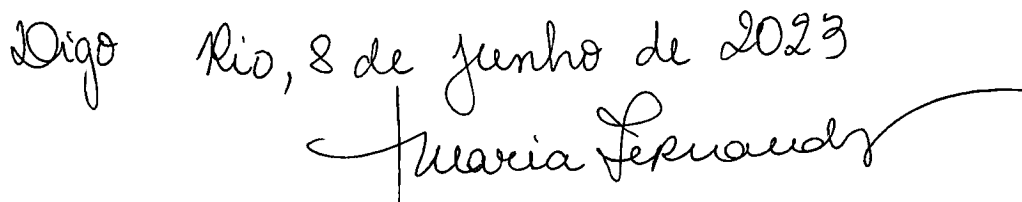 Digo Rio, 8 de Junho de 2023
Maria Fernanda